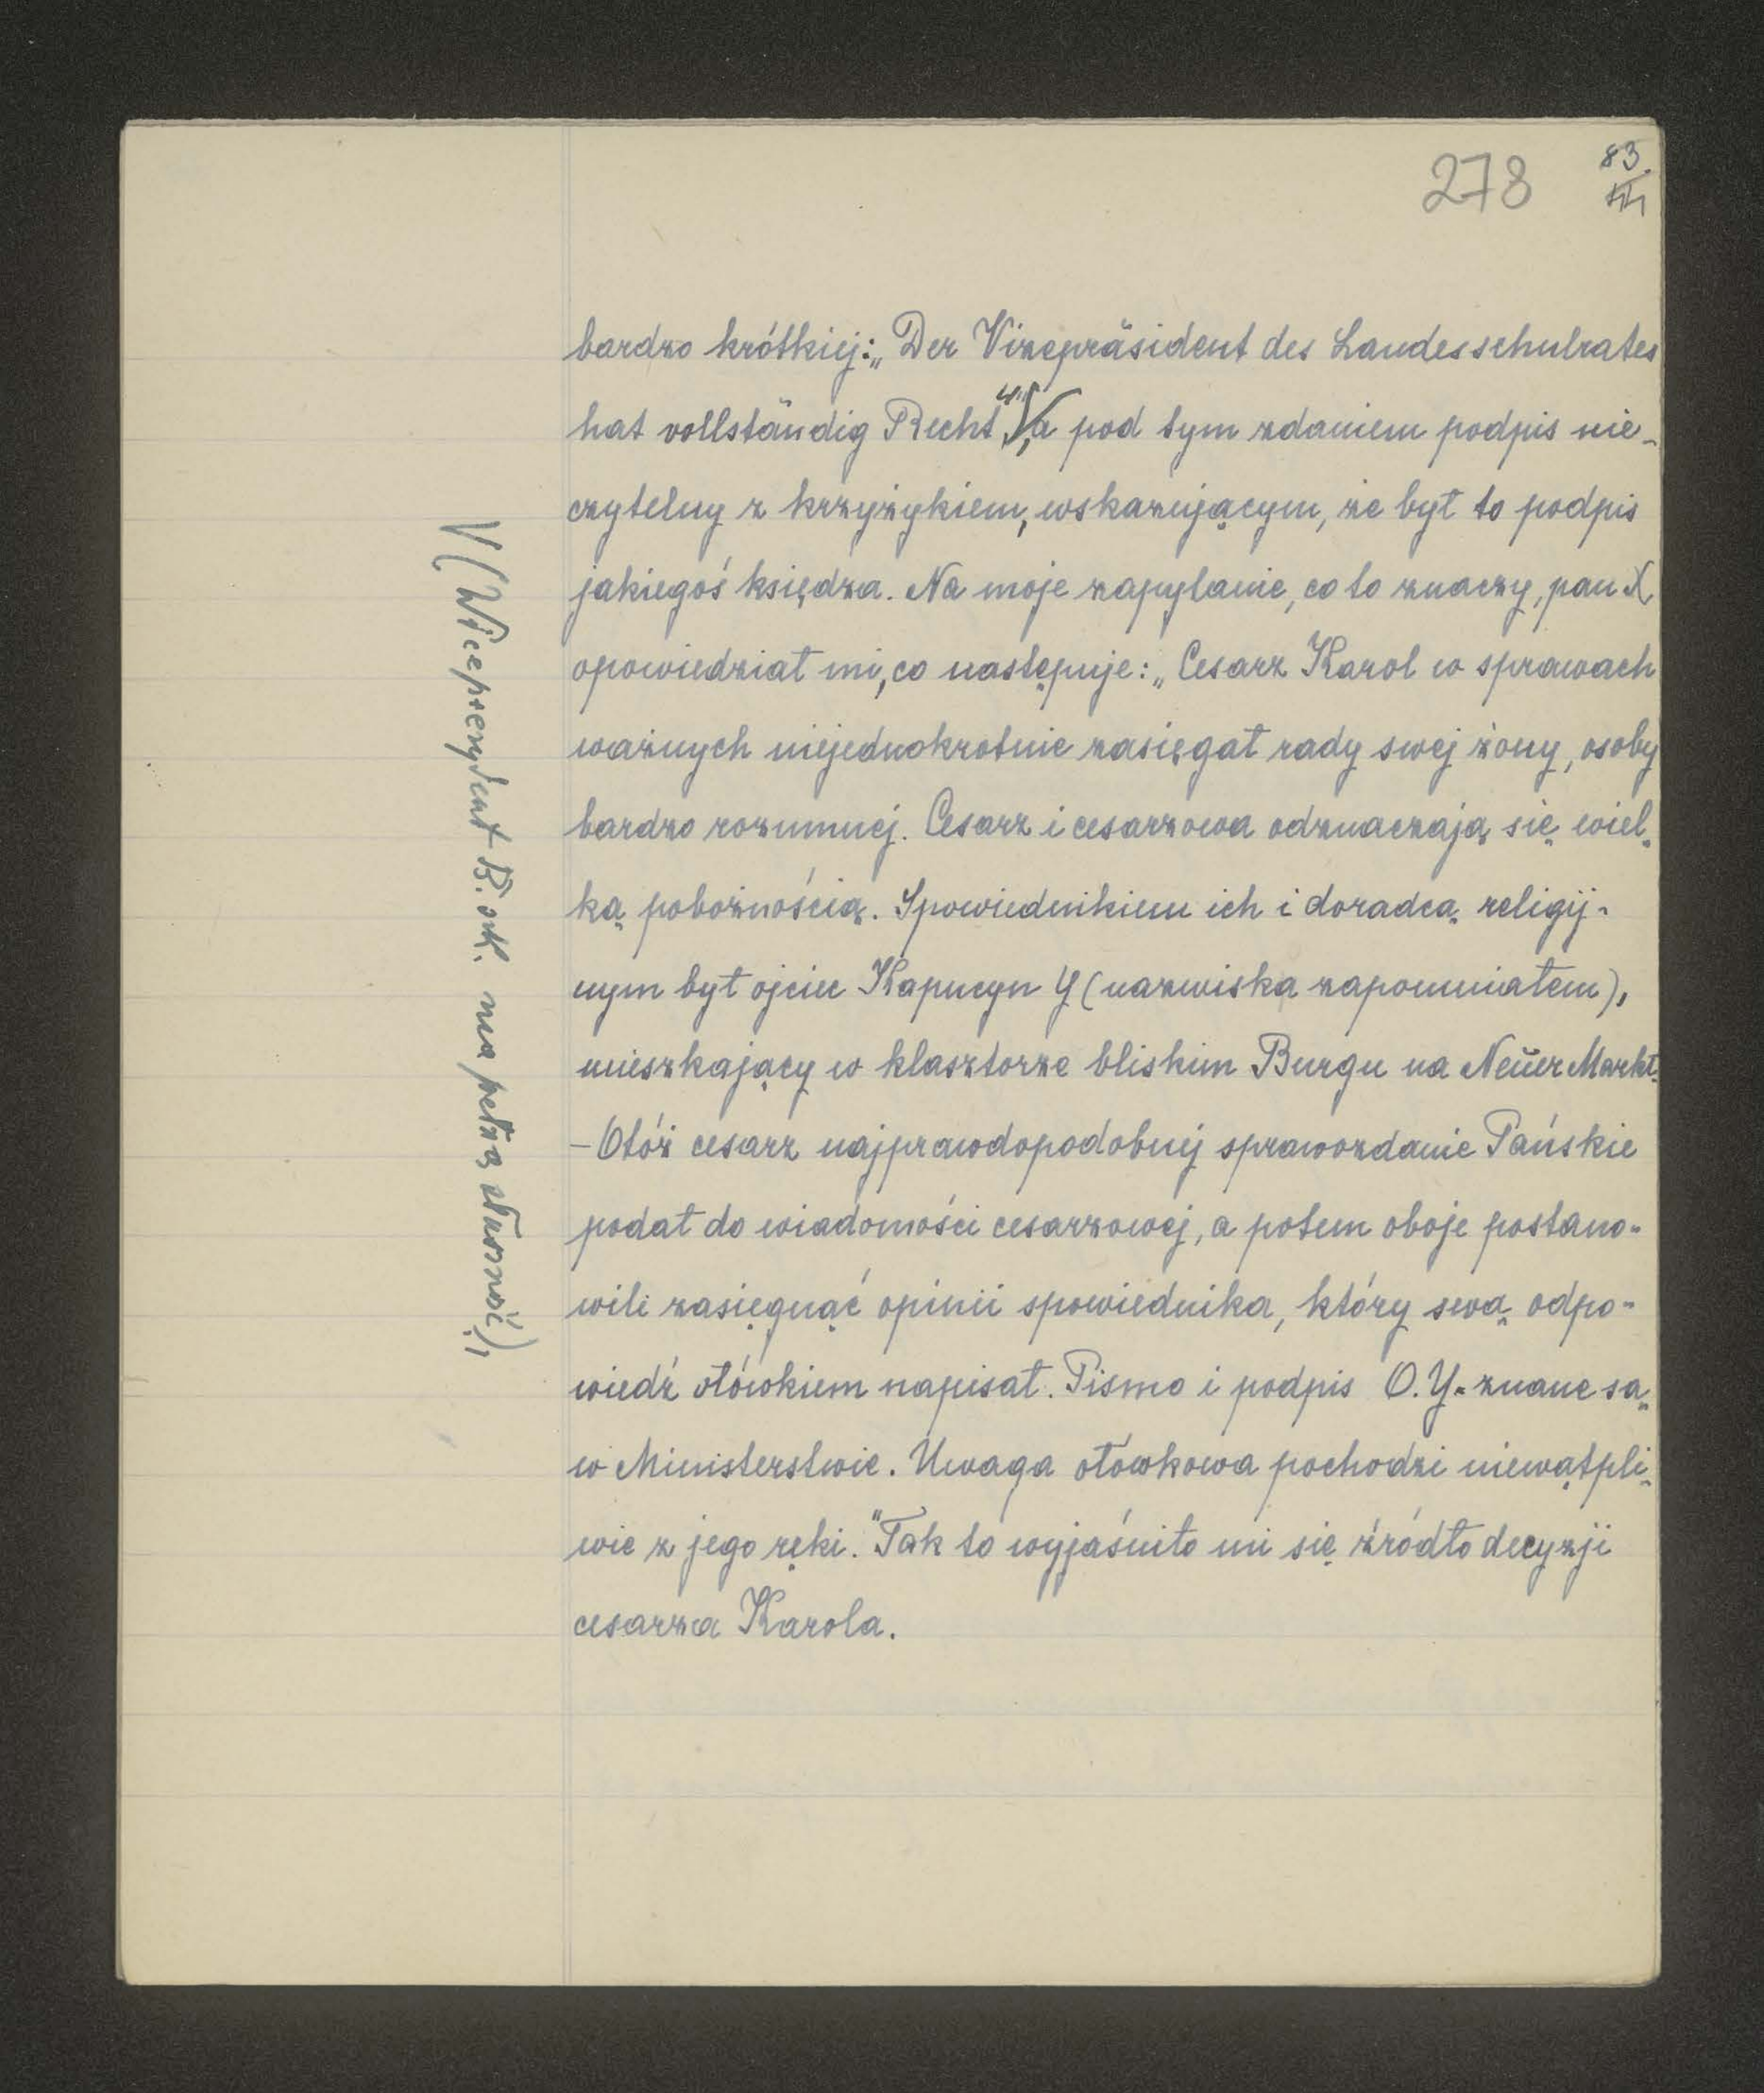 278
83.
III
bardzo krótkiej: „Der Vizepräsident des Landesschulrates
hat vollständig Recht" √, a pod tym zdaniem podpis nie-
czytelny z krzyżykiem, wskazującym, że był to podpis
jakiegoś księdza. Na moje zapytanie, co to znaczy, pan X
opowiedział mi, co następuje: „Cesarz Karol w sprawach
ważnych niejednokrotnie zasięgał rady swej żony, osoby
bardzo rozumnej. Cesarz i cesarzowa odznaczają się wiel-
ką pobożnością. Spowiednikiem ich i doradcą religij-
nym był ojciec Kapucyn Y (nazwiska zapomniałem),
mieszkający w klasztorze bliskim Burgu na Neuer Markt.
– Otóż cesarz najprawdopodobniej sprawozdanie Pańskie
podał do wiadomości cesarzowej, a potem oboje postano-
wili zasięgnąć opinii spowiednika, który swą odpo-
wiedź ołówkiem napisał. Pismo i podpis O. Y. znane są
w Ministerstwie. Uwaga ołówkowa pochodzi niewątpli-
wie z jego ręki." Tak to wyjaśniło mi się źródło decyzji
cesarza Karola.
√ (Wiceprezydent R. szk. ma pełną słuszność),